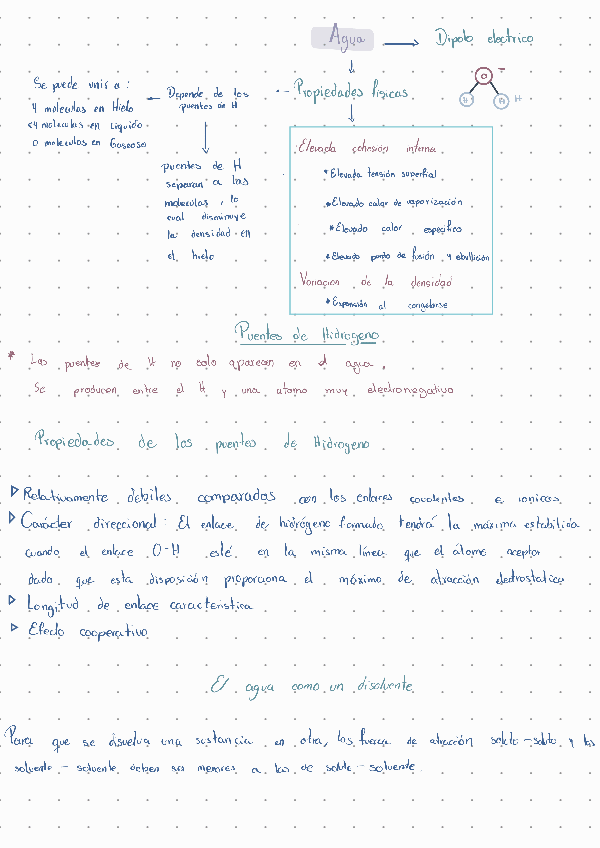 Agua
Dipolo electrico
Se puede unir a :
4 moleculas en Hielo
<4 moleculas en Liquido
0 moleculas en Gaseoso
Depende de los
puentes de H
Propiedades fisicas
O
H
H
puentes de H
separan a las
moleculas, lo
cual disminuye
la densidad en
el hielo
Elevada cohesión interna
*Elevada tensión superfial
*Elevado calor de vaporización
*Elevado calor especifico
*Elevado punto de fusión y ebullición
Variacion de la densidad
*Expansión al congelarse
Puentes de Hidrogeno
* Los puentes de H no solo aparecen en el agua,
Se producen entre el H y una atomo muy electronegativo
Propiedades de los puentes de Hidrogeno
Relativamente débiles comparados con los enlaces covalentes e ionicos
Carácter direccional : El enlace de hidrógeno formado tendrá la máxima estabilida
cuando el enlace O-H esté en la misma línea que el átomo aceptor
dado que esta disposición proporciona el máximo de atracción electrostatica
Longitud de enlace caracteristica
Efecto cooperativo
El agua como un disolvente
Para que se disuelva una sustancia en otra, las fuerza de atracción soluto-soluto y las
solvente - solvente deben ser menores a las de soluto - solvente